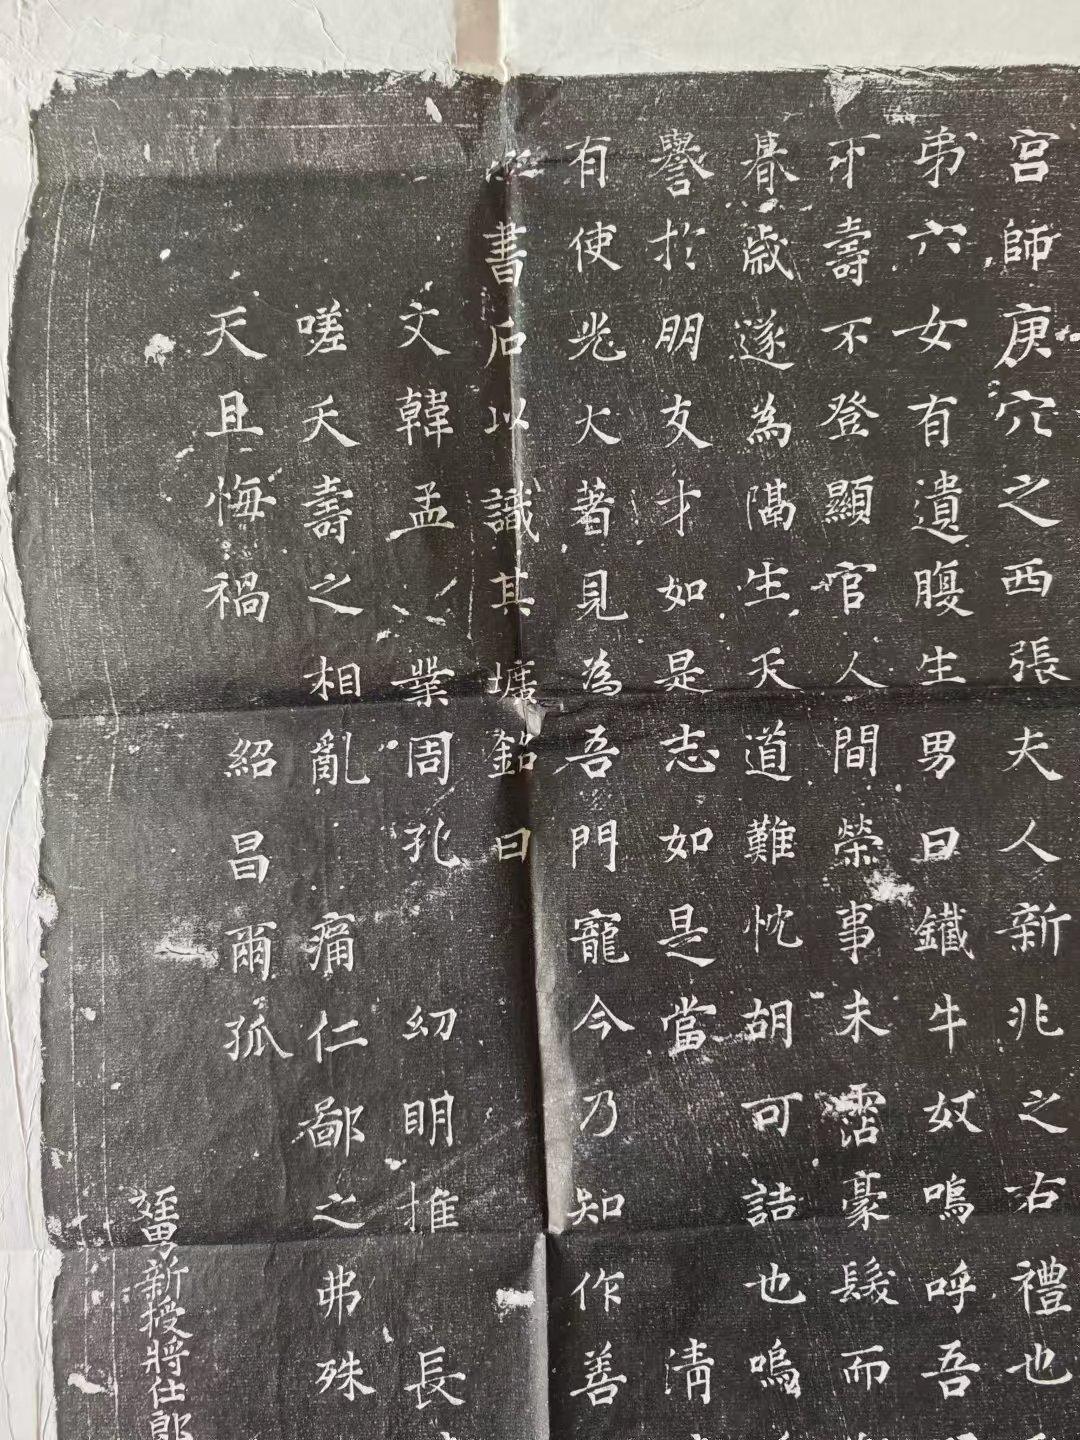 宮師庚穴之西張夫人新兆之右禮也
弟六女有遺腹生男曰鐵牛奴嗚呼吾
不壽不登顯官人間榮事未霑豪髮而
暮歲遂為隔生天道難忱胡可詰也嗚
譽於朋友才如是志如是當 清
有使光大著見為吾門寵今乃知作善
書石以識其壙銘曰
文韓孟 業周孔 幼明惟 長
嗟夭壽之相亂 痛仁鄙之弗殊
天且悔禍 紹昌爾孤
姪男新授將仕郎